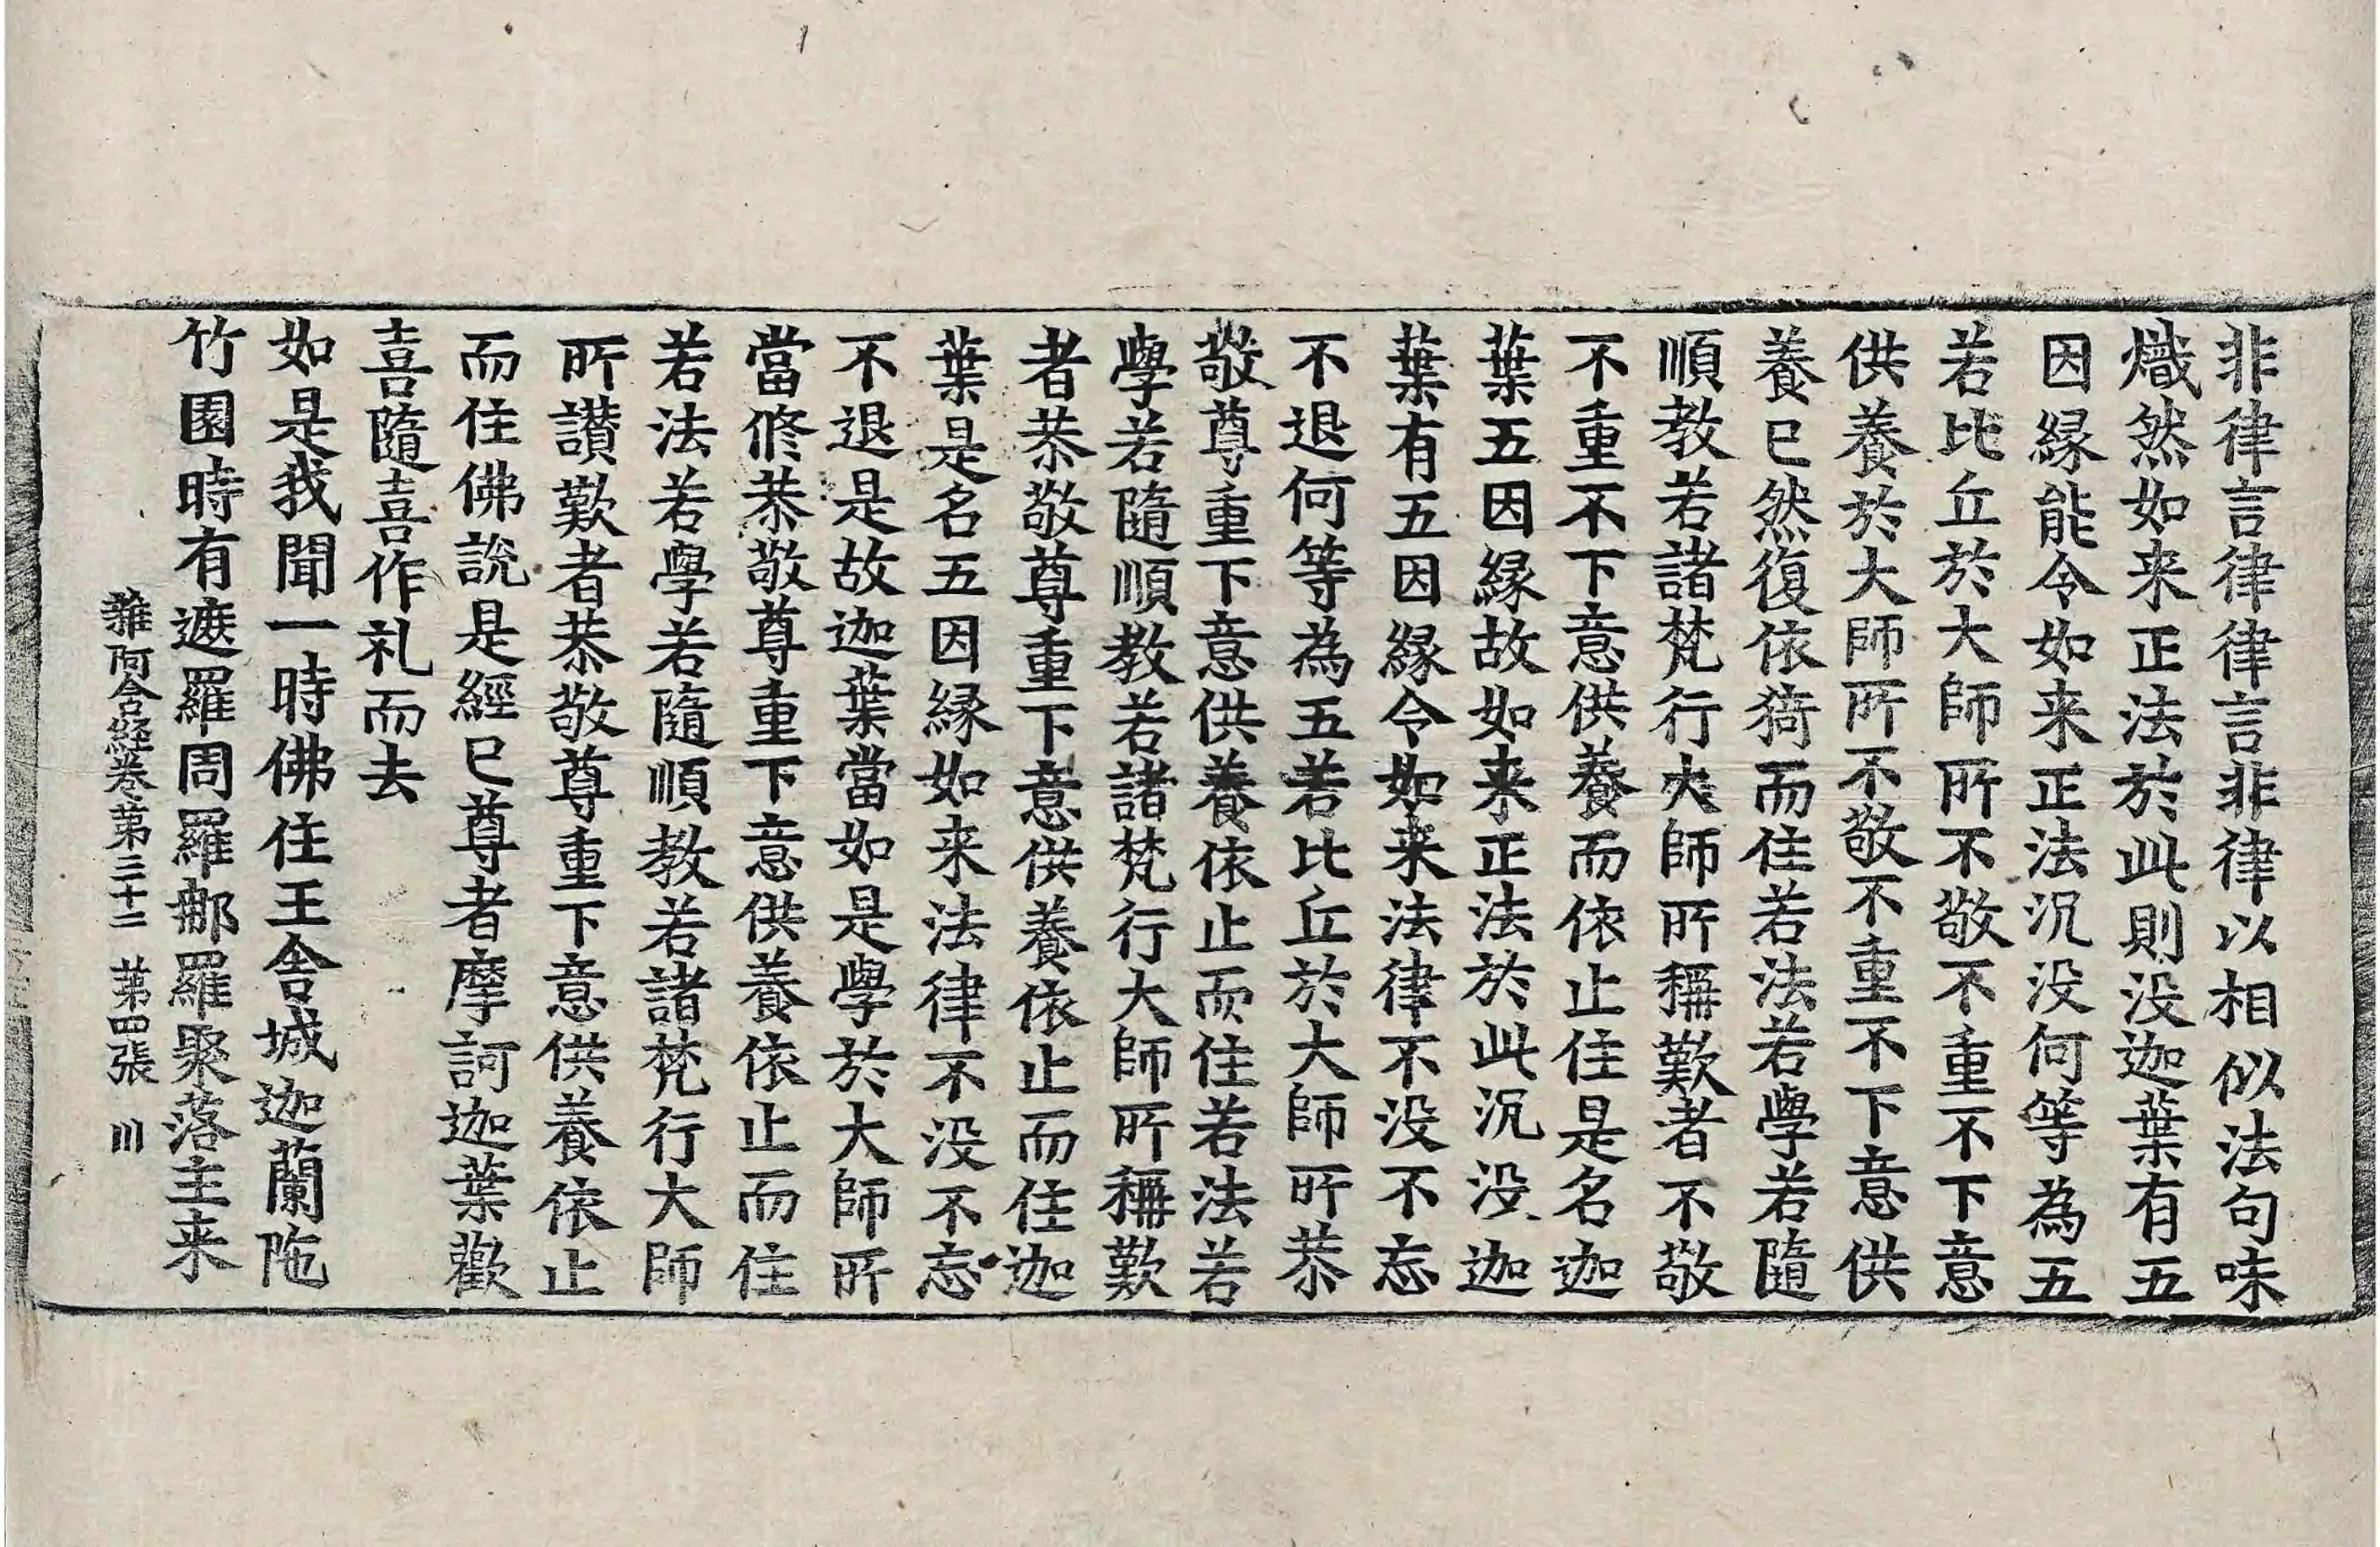 非律言律律言非律以相似法句味
熾然如来正法於此則没迦葉有五
因縁能令如来正法沉没何等為五
若比丘於大師所不敬不重不下意
供養於大師所不敬不重不下意供
養已然復依猗而住若法若學若隨
順教若諸梵行大師所稱歎者不敬
不重不下意供養而依止住是名迦
葉五因縁故如来正法於此沉没迦
葉有五因縁令如来法律不没不忘
不退何等為五若比丘於大師所恭
敬尊重下意供養依止而住若法若
學若隨順教若諸梵行大師所稱歎
者恭敬尊重下意供養依止而住迦
葉是名五因縁如来法律不没不忘
不退是故迦葉當如是學於大師所
當修恭敬尊重下意供養依止而住
若法若學若隨順教若諸梵行大師
所讃歎者恭敬尊重下意供養依止
而住佛說是經已尊者摩訶迦葉歡
喜隨喜作礼而去
如是我聞一時佛住王舍城迦蘭陁
竹園時有遮羅周羅那羅聚落主来
雜阿含経卷第三十二 第四張 川